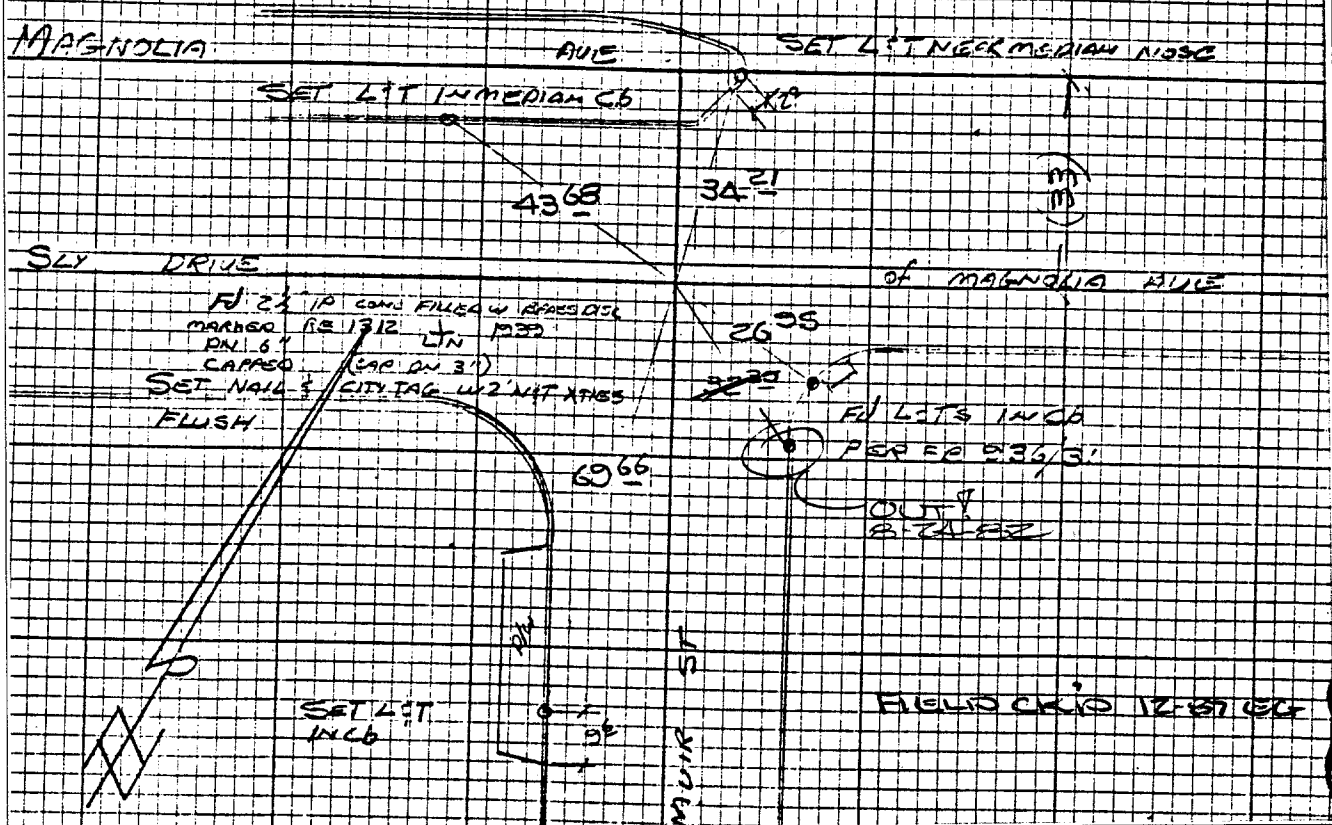 MAGNOLIA AVE
SET L&T NEAR MEDIAN NOSE
SET L&T IN MEDIAN CB
(33)
43 68
34 21
SLY DRIVE
of MAGNOLIA AVE
FD 2½" IP CONC FILLED W BRASS DISC
MARKED RE 1312 1939
DN 6"
CAPPED (CAP DN 3")
SET NAIL & CITY TAG
FLUSH
26 95
FD L&TS IN CB
PER FB 936/31
69 66
OUT
8-24-82
SET L&T
IN CB
MUIR ST
FIELD CK'D 12-87 EG